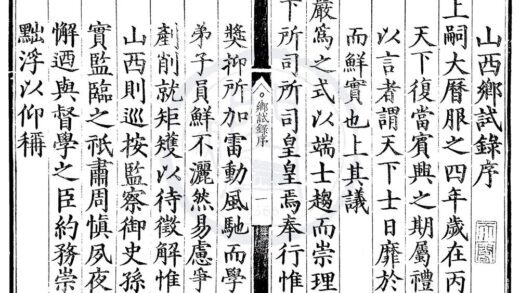 山西鄉試錄序
上嗣大曆服之四年歲在丙
天下復當賓興之期屬禮
以言者謂天下士日靡於
而鮮實也上其議
嚴爲之式以端士趨而崇理
下所司所司皇皇焉奉行惟
鄉試錄序
一
獎抑所加雷動風馳而學
弟子員鮮不灑然易慮爭
剷削就矩矱以待徵解惟
山西則巡按監察御史孫
實監臨之祇肅周慎夙夜
懈迺與督學之臣約務崇
黜浮以仰稱